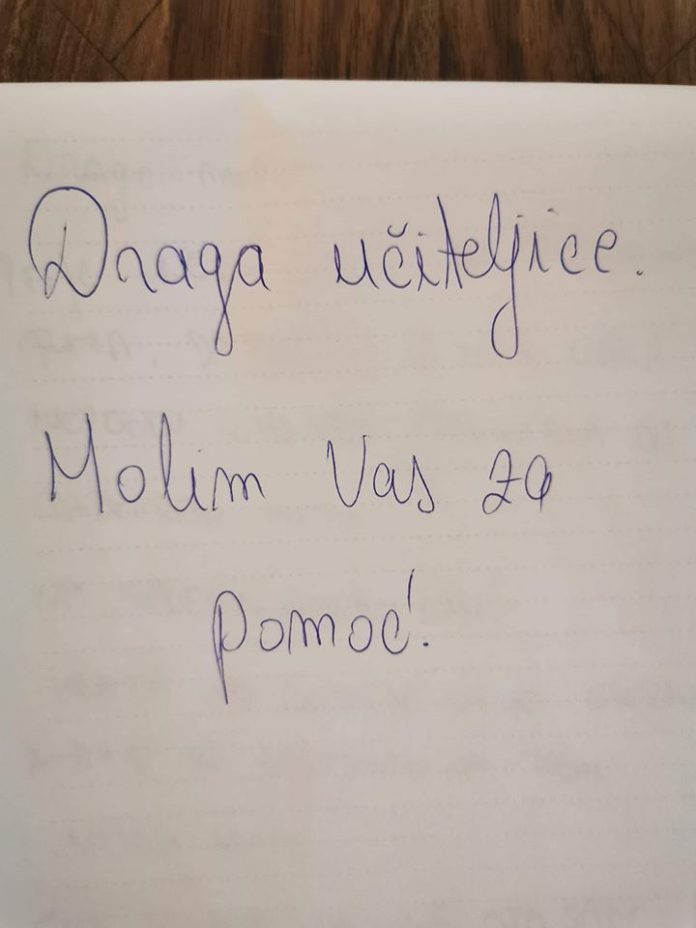 Draga učiteljice.
Molim Vas za
pomoć.